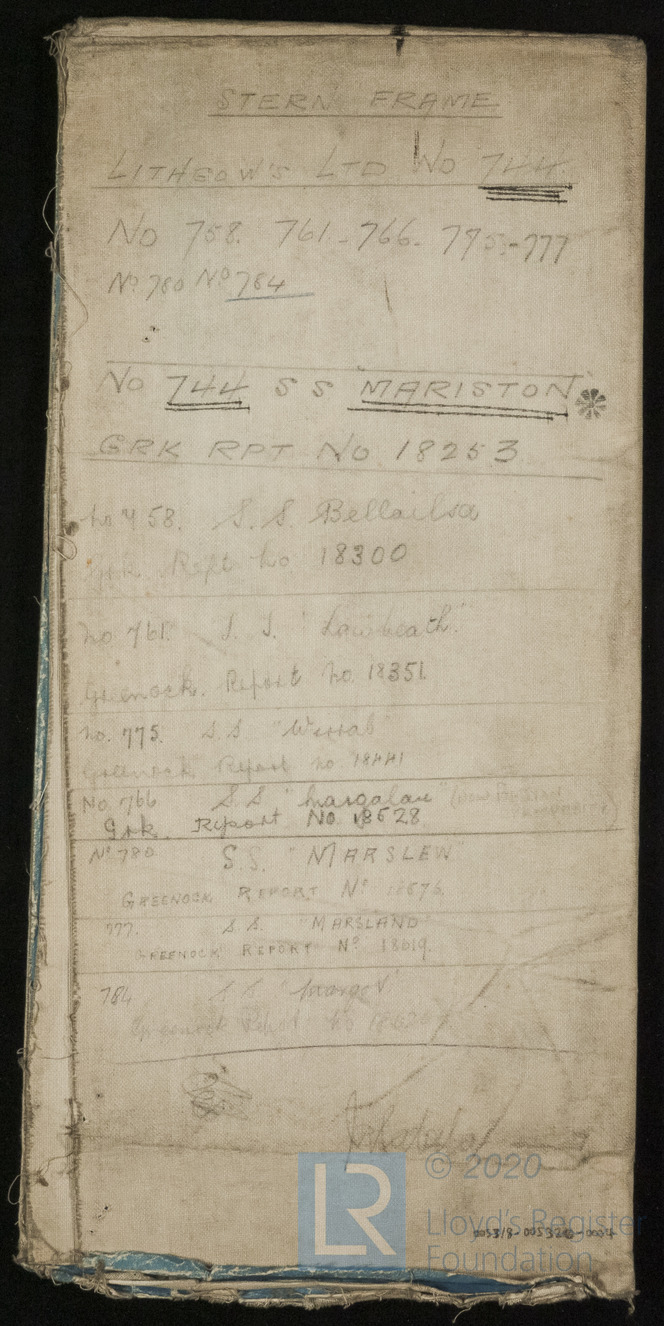 STERN FRAME
LITHGOW'S LTD No 744
No 758. 761-766-775-777
No 780 No 784
No 744 SS "MARISTON"
GRK RPT No 18253
No 758. S.S. Bellailsa
Grk Rept No 18300
No 761. S.S. "Lowbeath."
Greenock. Report No. 18351.
No. 775. S.S "Wirral"
Greenock Report No 18441
No. 766 S.S "Largalau" (NOW
Grk. Report No. 18628
No 780 S.S. "MARSLEW"
GREENOCK REPORT No
777. S.S. "MARSLAND"
GREENOCK REPORT No 18619.
784 S.S
Greenock Report No 18620
LR
© 2020
Lloyd's Register
Foundation